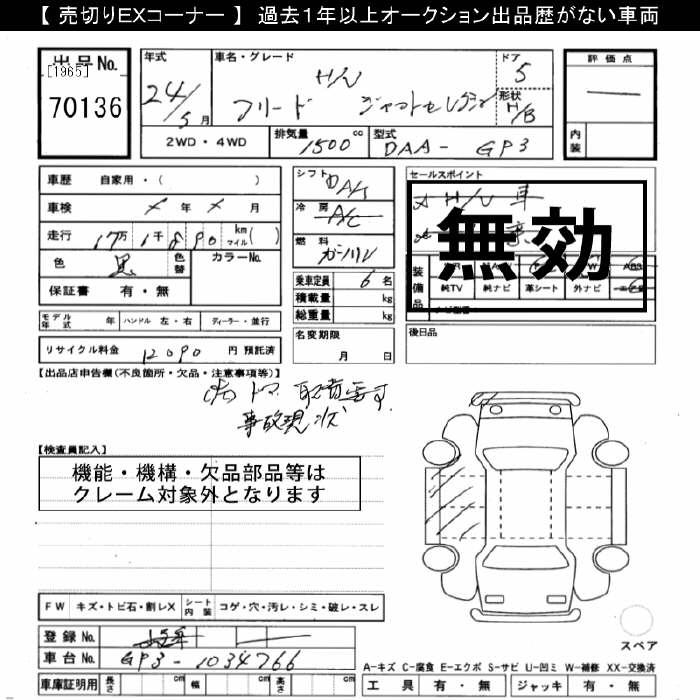 【 売切りEXコーナー 】 過去１年以上オークション出品歴がない車両
出品No. 年式 車名・グレード ドア 評価点
[1965] H/V 5
70136 24/5月 フリード ジャストセレクション 形状 H/B
2WD・4WD 排気量 1500cc 型式 DAA- GP3 内装
車歴 自家用・( ) シフト DA/T セールスポイント
車検 年 月 冷房 A/C H/V 車
走行 17万1千890 km マイル( ) 燃料 ガソリン 無効
色 黒 色替 カラーNo. 乗車定員 6名 装備品
保証書 有・無 積載量 kg 純TV 純ナビ 革シート 外ナビ
モデル年式 年 ハンドル 左・右 ディーラー・並行 総重量 kg
リサイクル料金 12090 円 預託済 名変期限 月 日 後日品
【出品店申告欄(不良箇所・欠品・注意事項等)】
事故現状
【検査員記入】
機能・機構・欠品部品等は
クレーム対象外となります
FW キズ・トビ石・割レX シート内装 コゲ・穴・汚レ・シミ・破レ・スレ
登録No.
スペア
車台No. GP3-1034766
A-キズ C-腐食 E-エクボ S-サビ U-凹ミ W-補修 XX-交換済
車庫証明用 cm 幅 cm 高さ cm 工具 有・無 ジャッキ 有・無